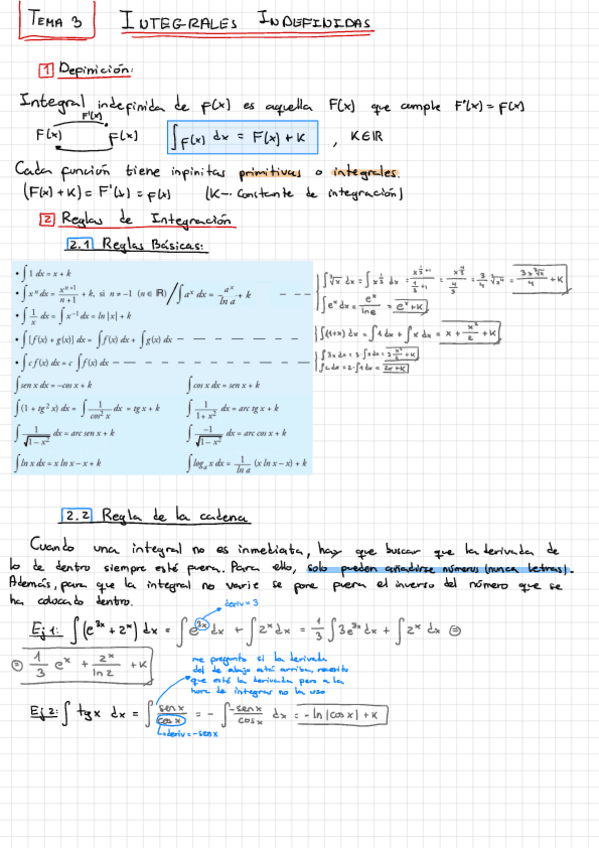 TEMA 3 INTEGRALES INDEFINIDAS
1 Definición:
Integral indefinida de f(x) es aquella F(x) que cumple F'(x) = f(x)
F'(x)
F(x) f(x) ∫f(x) dx = F(x) + K , K∈ℝ
Cada función tiene infinitas primitivas o integrales.
(F(x) + K) = F'(x) = f(x) (K-- constante de integración)
2 Reglas de Integración
2.1 Reglas Básicas:
• ∫ 1 dx = x + k
• ∫ xⁿ dx = xⁿ⁺¹/(n+1) + k, si n ≠ -1 (n ∈ ℝ) / ∫ aˣ dx = aˣ/ln a + k
• ∫ 1/x dx = ∫ x⁻¹ dx = ln |x| + k
• ∫ [f(x) + g(x)] dx = ∫ f(x) dx + ∫ g(x) dx
• ∫ c f(x) dx = c ∫ f(x) dx
∫ sen x dx = -cos x + k ∫ cos x dx = sen x + k
∫ (1 + tg² x) dx = ∫ 1/cos² x dx = tg x + k ∫ 1/(1 + x²) dx = arc tg x + k
∫ 1/√(1-x²) dx = arc sen x + k ∫ -1/√(1-x²) dx = arc cos x + k
∫ ln x dx = x ln x - x + k ∫ logₐ x dx = 1/ln a (x ln x - x) + k
∫ ∛x dx = ∫ x^(1/3) dx = x^(1/3+1)/(1/3+1) = x^(4/3)/(4/3) = 3/4 ∛x⁴ = 3x∛x/4 + K
∫ eˣ dx = eˣ/ln e = eˣ + K
∫ (1+x) dx = ∫ 1 dx + ∫ x dx = x + x²/2 + K
∫ 3x dx = 3·∫ x dx = 3·x²/2 + K
∫ 2 dx = 2·∫ 1 dx = 2x + K
2.2 Regla de la cadena
Cuando una integral no es inmediata, hay que buscar que la derivada de
lo de dentro siempre esté fuera. Para ello, solo pueden añadirse números (nunca letras).
Además, para que la integral no varíe se pone fuera el inverso del número que se
ha colocado dentro.
deriv = 3
Ej 1: ∫(e³ˣ + 2ˣ) dx = ∫e³ˣ dx + ∫2ˣ dx = 1/3 ∫3e³ˣ dx + ∫2ˣ dx =
= 1/3 eˣ + 2ˣ/ln 2 + K
me pregunto si la derivada
del de abajo está arriba, necesito
que esté la derivada pero a la
hora de integrar no la uso
Ej 2: ∫tg x dx = ∫ sen x/cos x = - ∫ -sen x/cos x dx = -ln|cos x| + K
deriv = -sen x